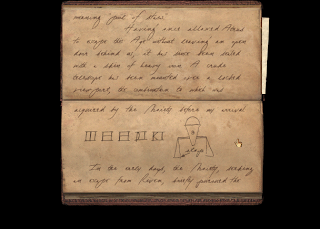 meaning "
Having once allowed Atrus
to escape the Age without leaving an open
book behind us, it has since been sealed
with a of heavy iron. A crude
telescope has been mounted over a locked
viewport, the combination to which was
acquired by the Moiety before my arrival
In the early days, the Moiety, seeking
an escape from Riven, briefly pursued the